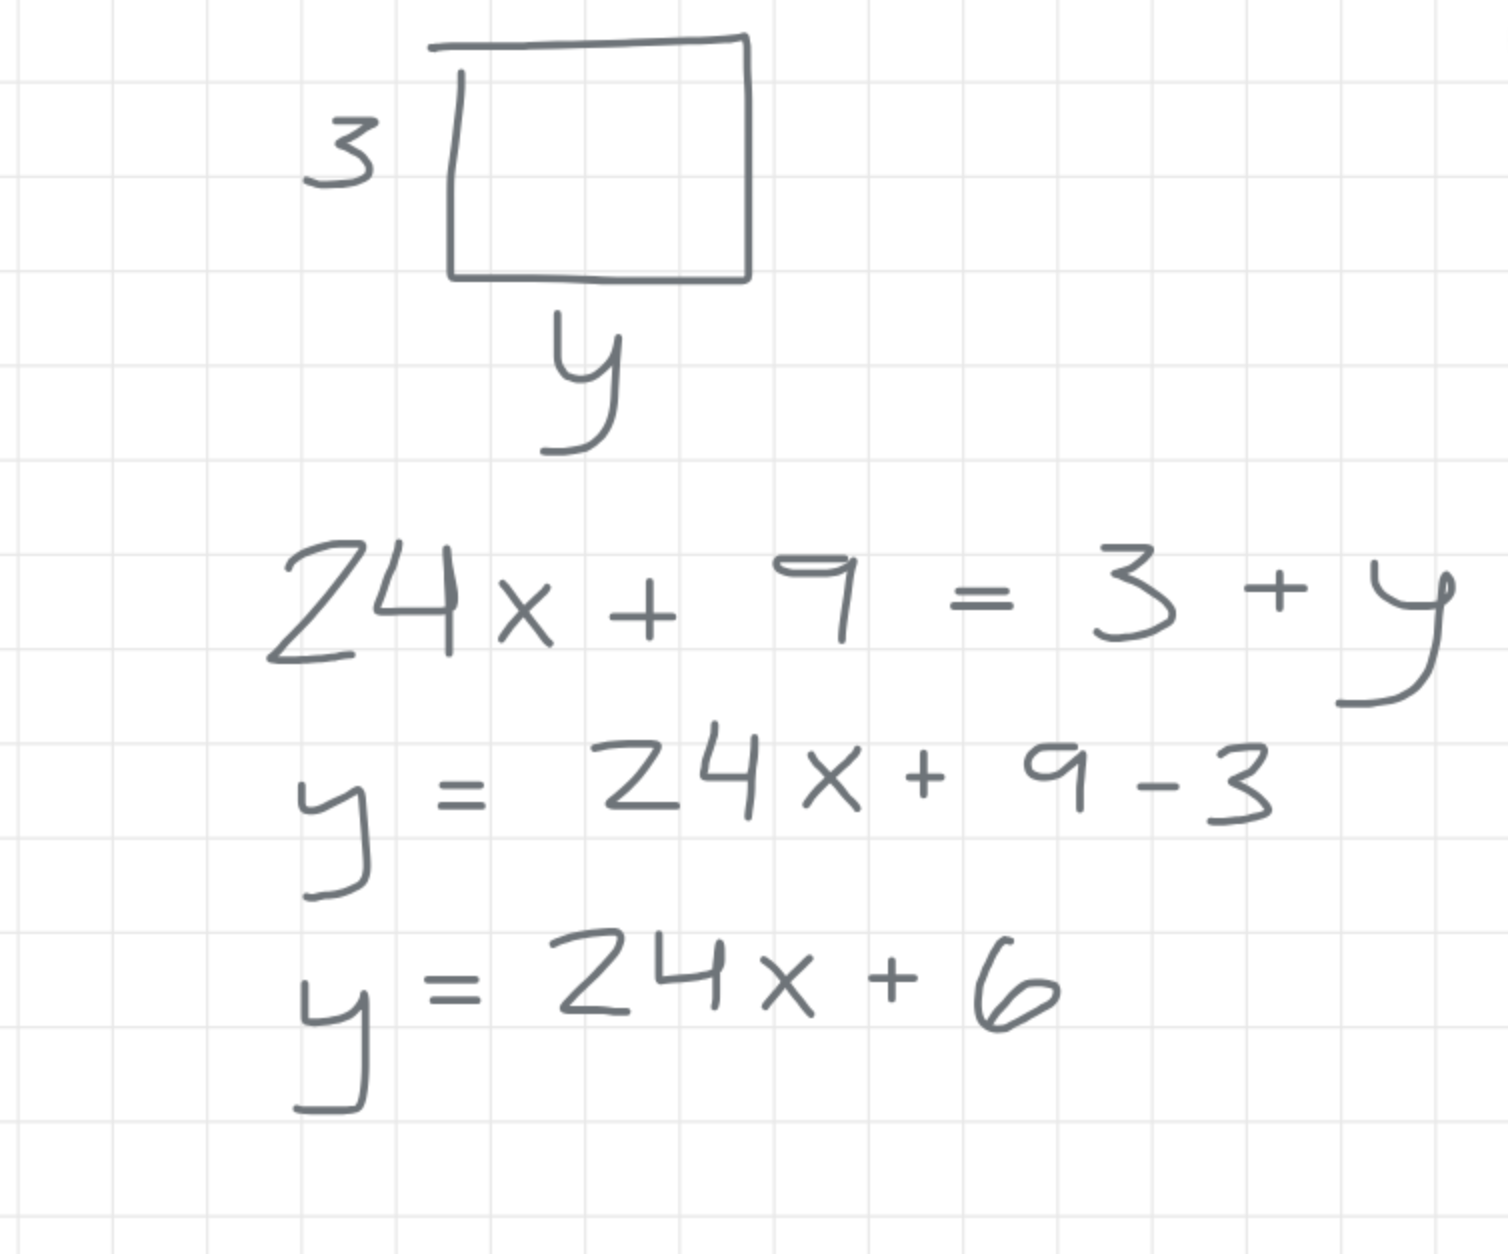 3
y
24x + 9 = 3 + y
y = 24x + 9 - 3
y = 24x + 6